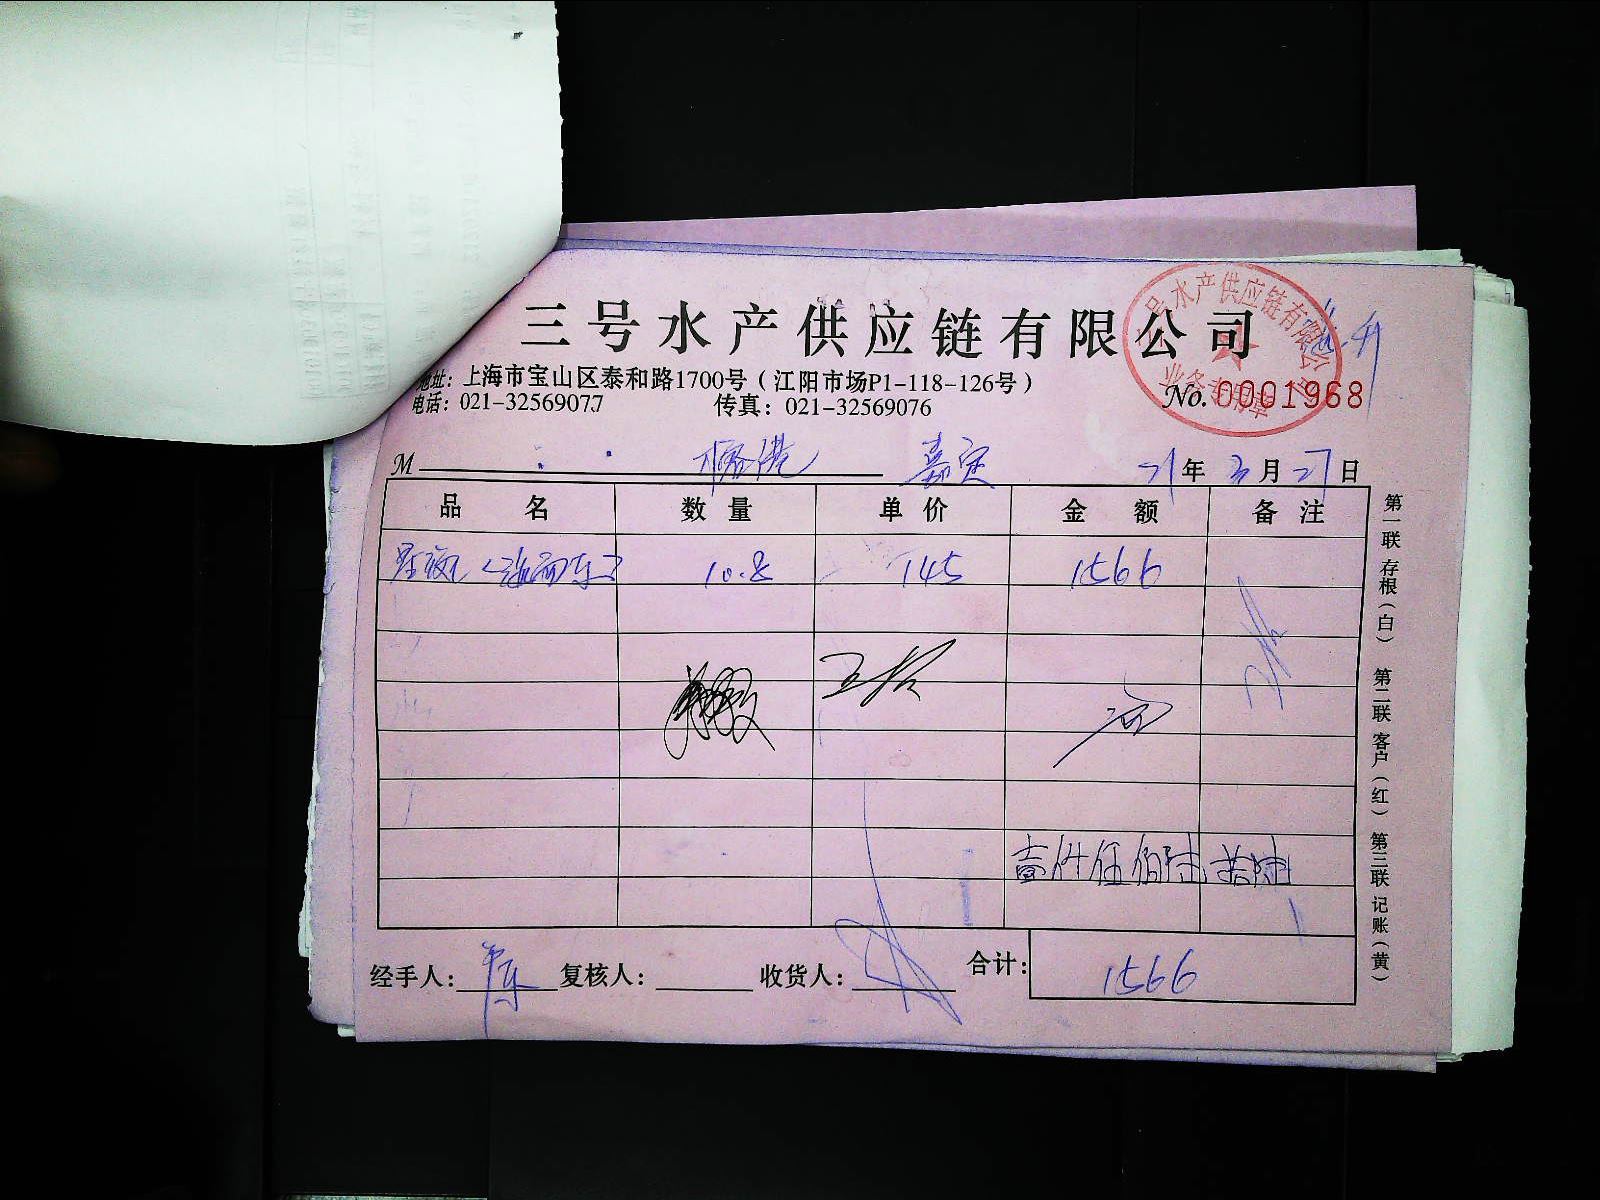 三号水产供应链有限公司
地址：上海市宝山区泰和路1700号（江阳市场P1-118-126号）
电话：021-32569077 传真：021-32569076
号水产供应链有限公
业务专用章
No. 0001968
M 嘉定 21年3月27日
品名 数量 单价 金额 备注
10.8 145 1566
壹仟伍佰陆拾陆
经手人： 复核人： 收货人： 合计：1566
第一联 存根（白） 第二联 客户（红） 第三联 记账（黄）